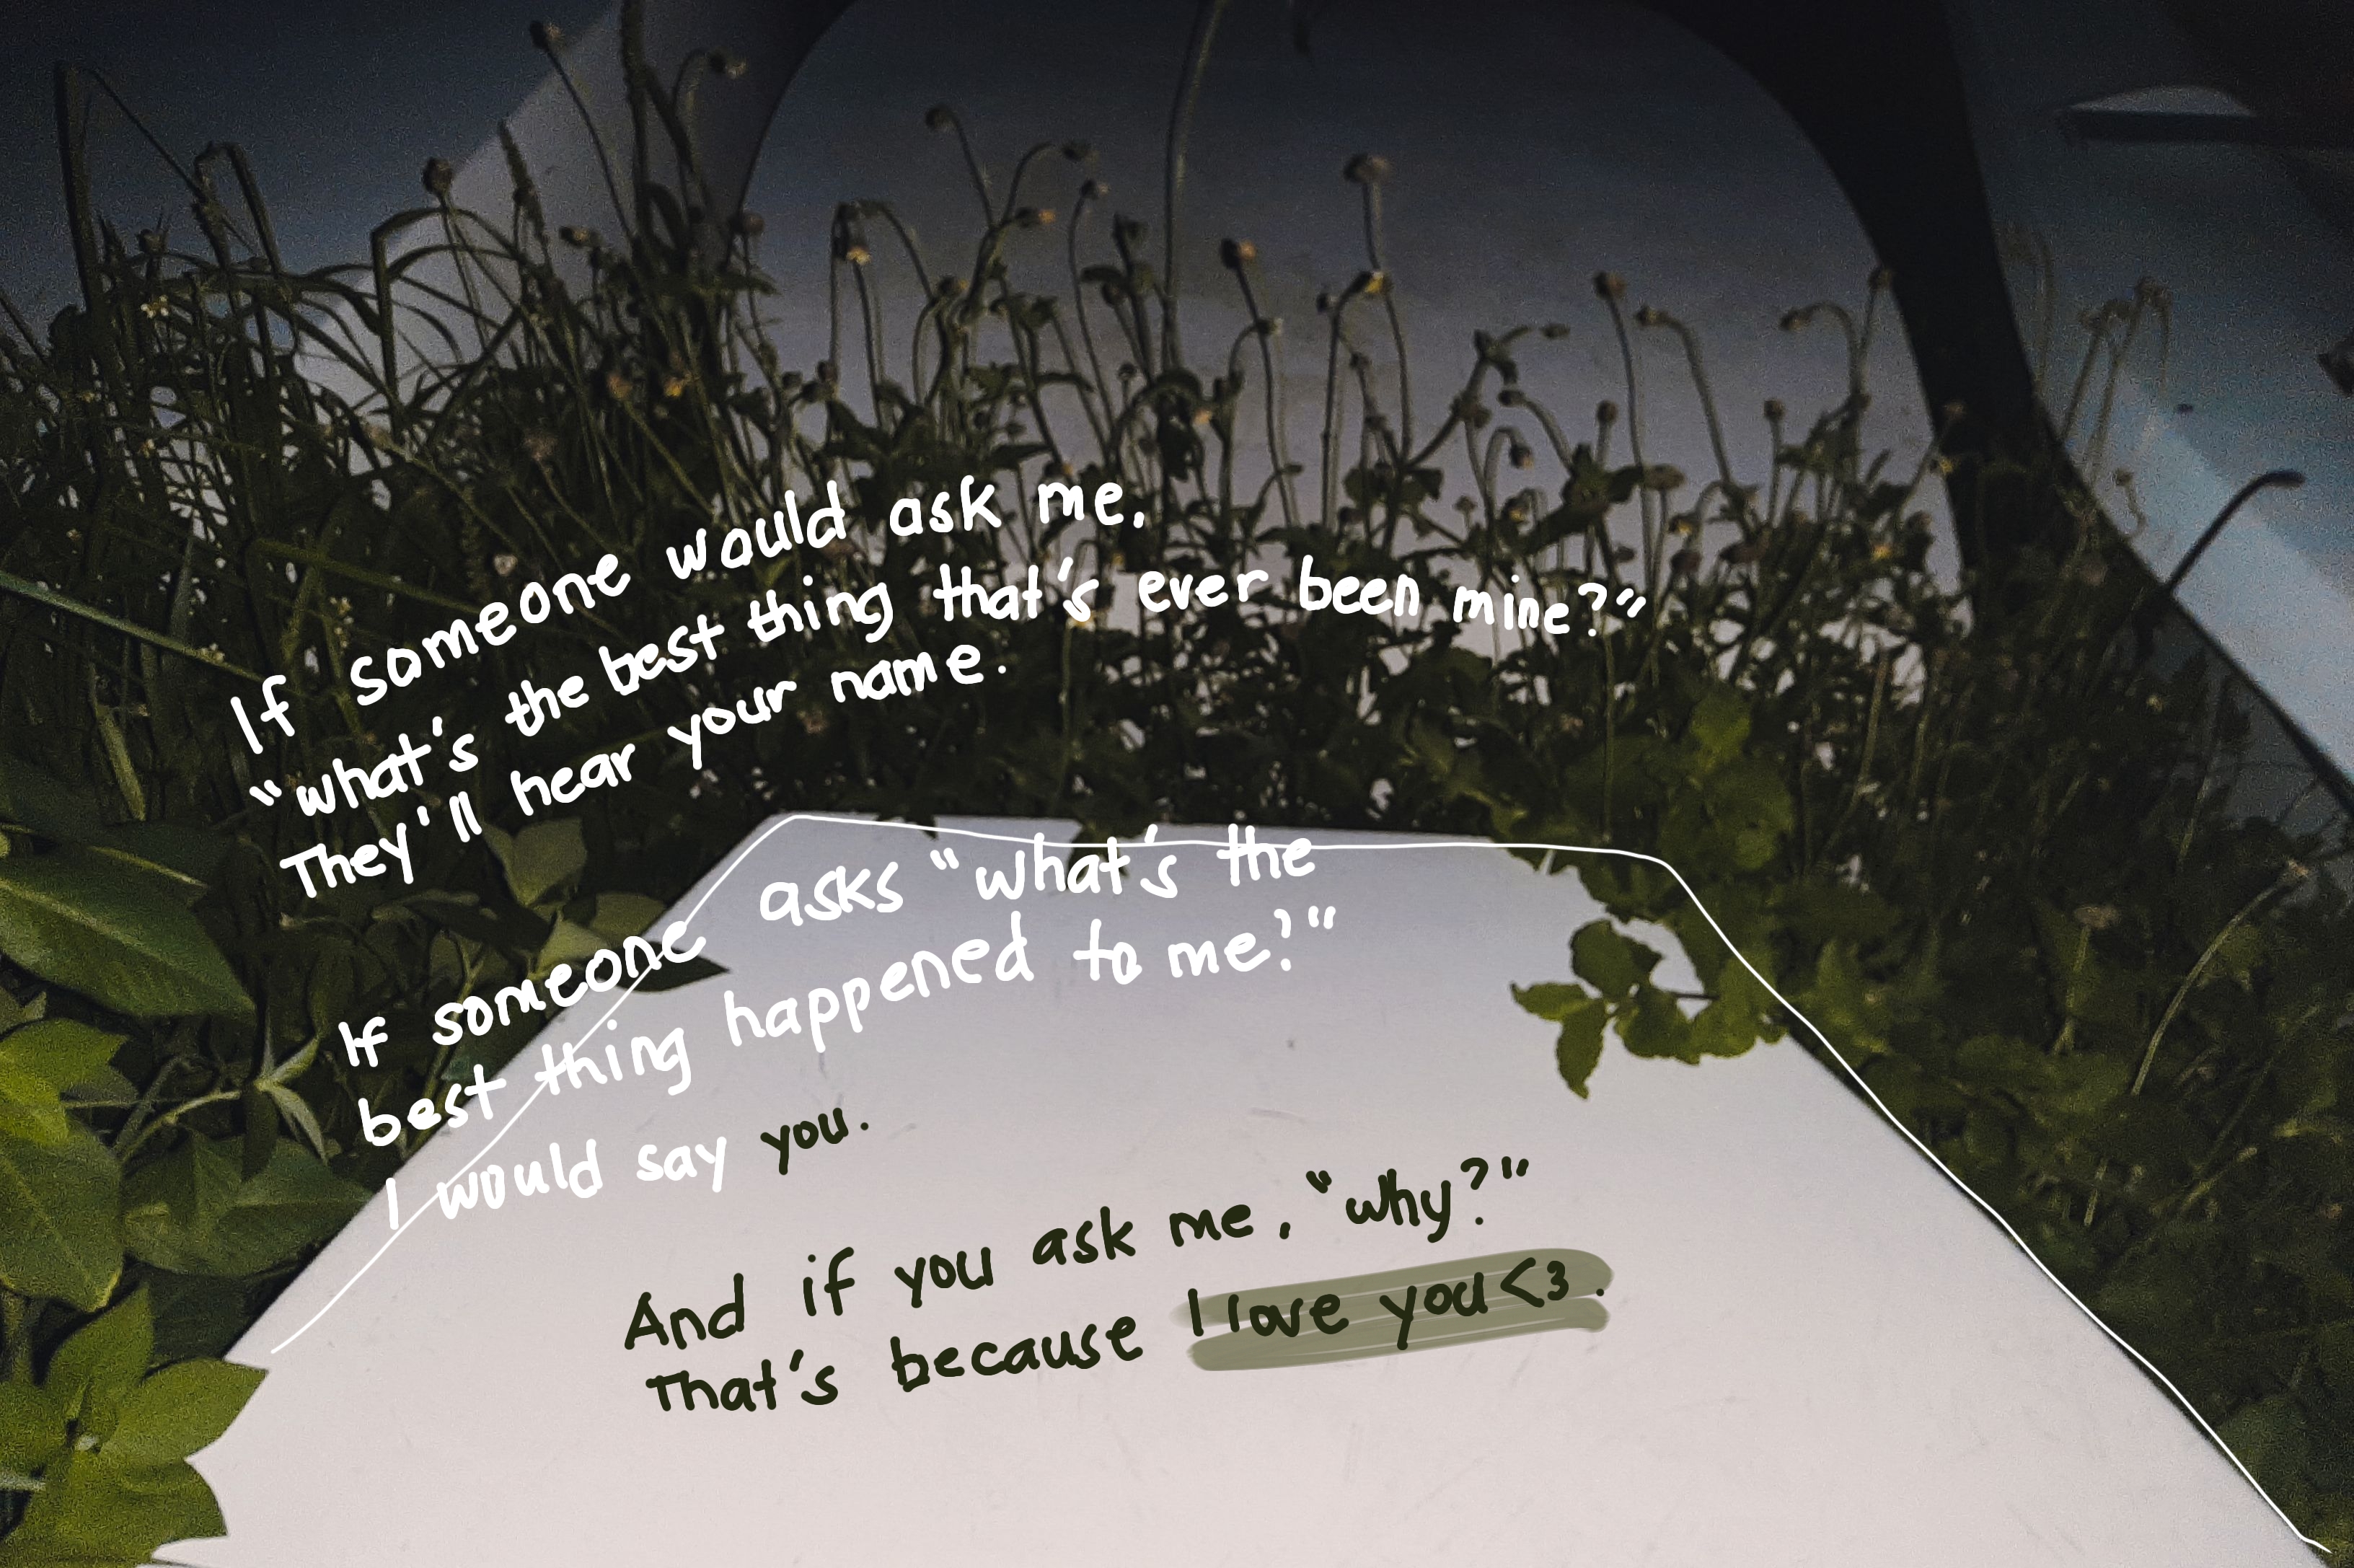 If someone would ask me,
"what's the best thing that's ever been mine?"
They'll hear your name.
If someone asks "what's the
best thing happened to me?"
I would say you.
And if you ask me, "why?"
That's because I love you <3.